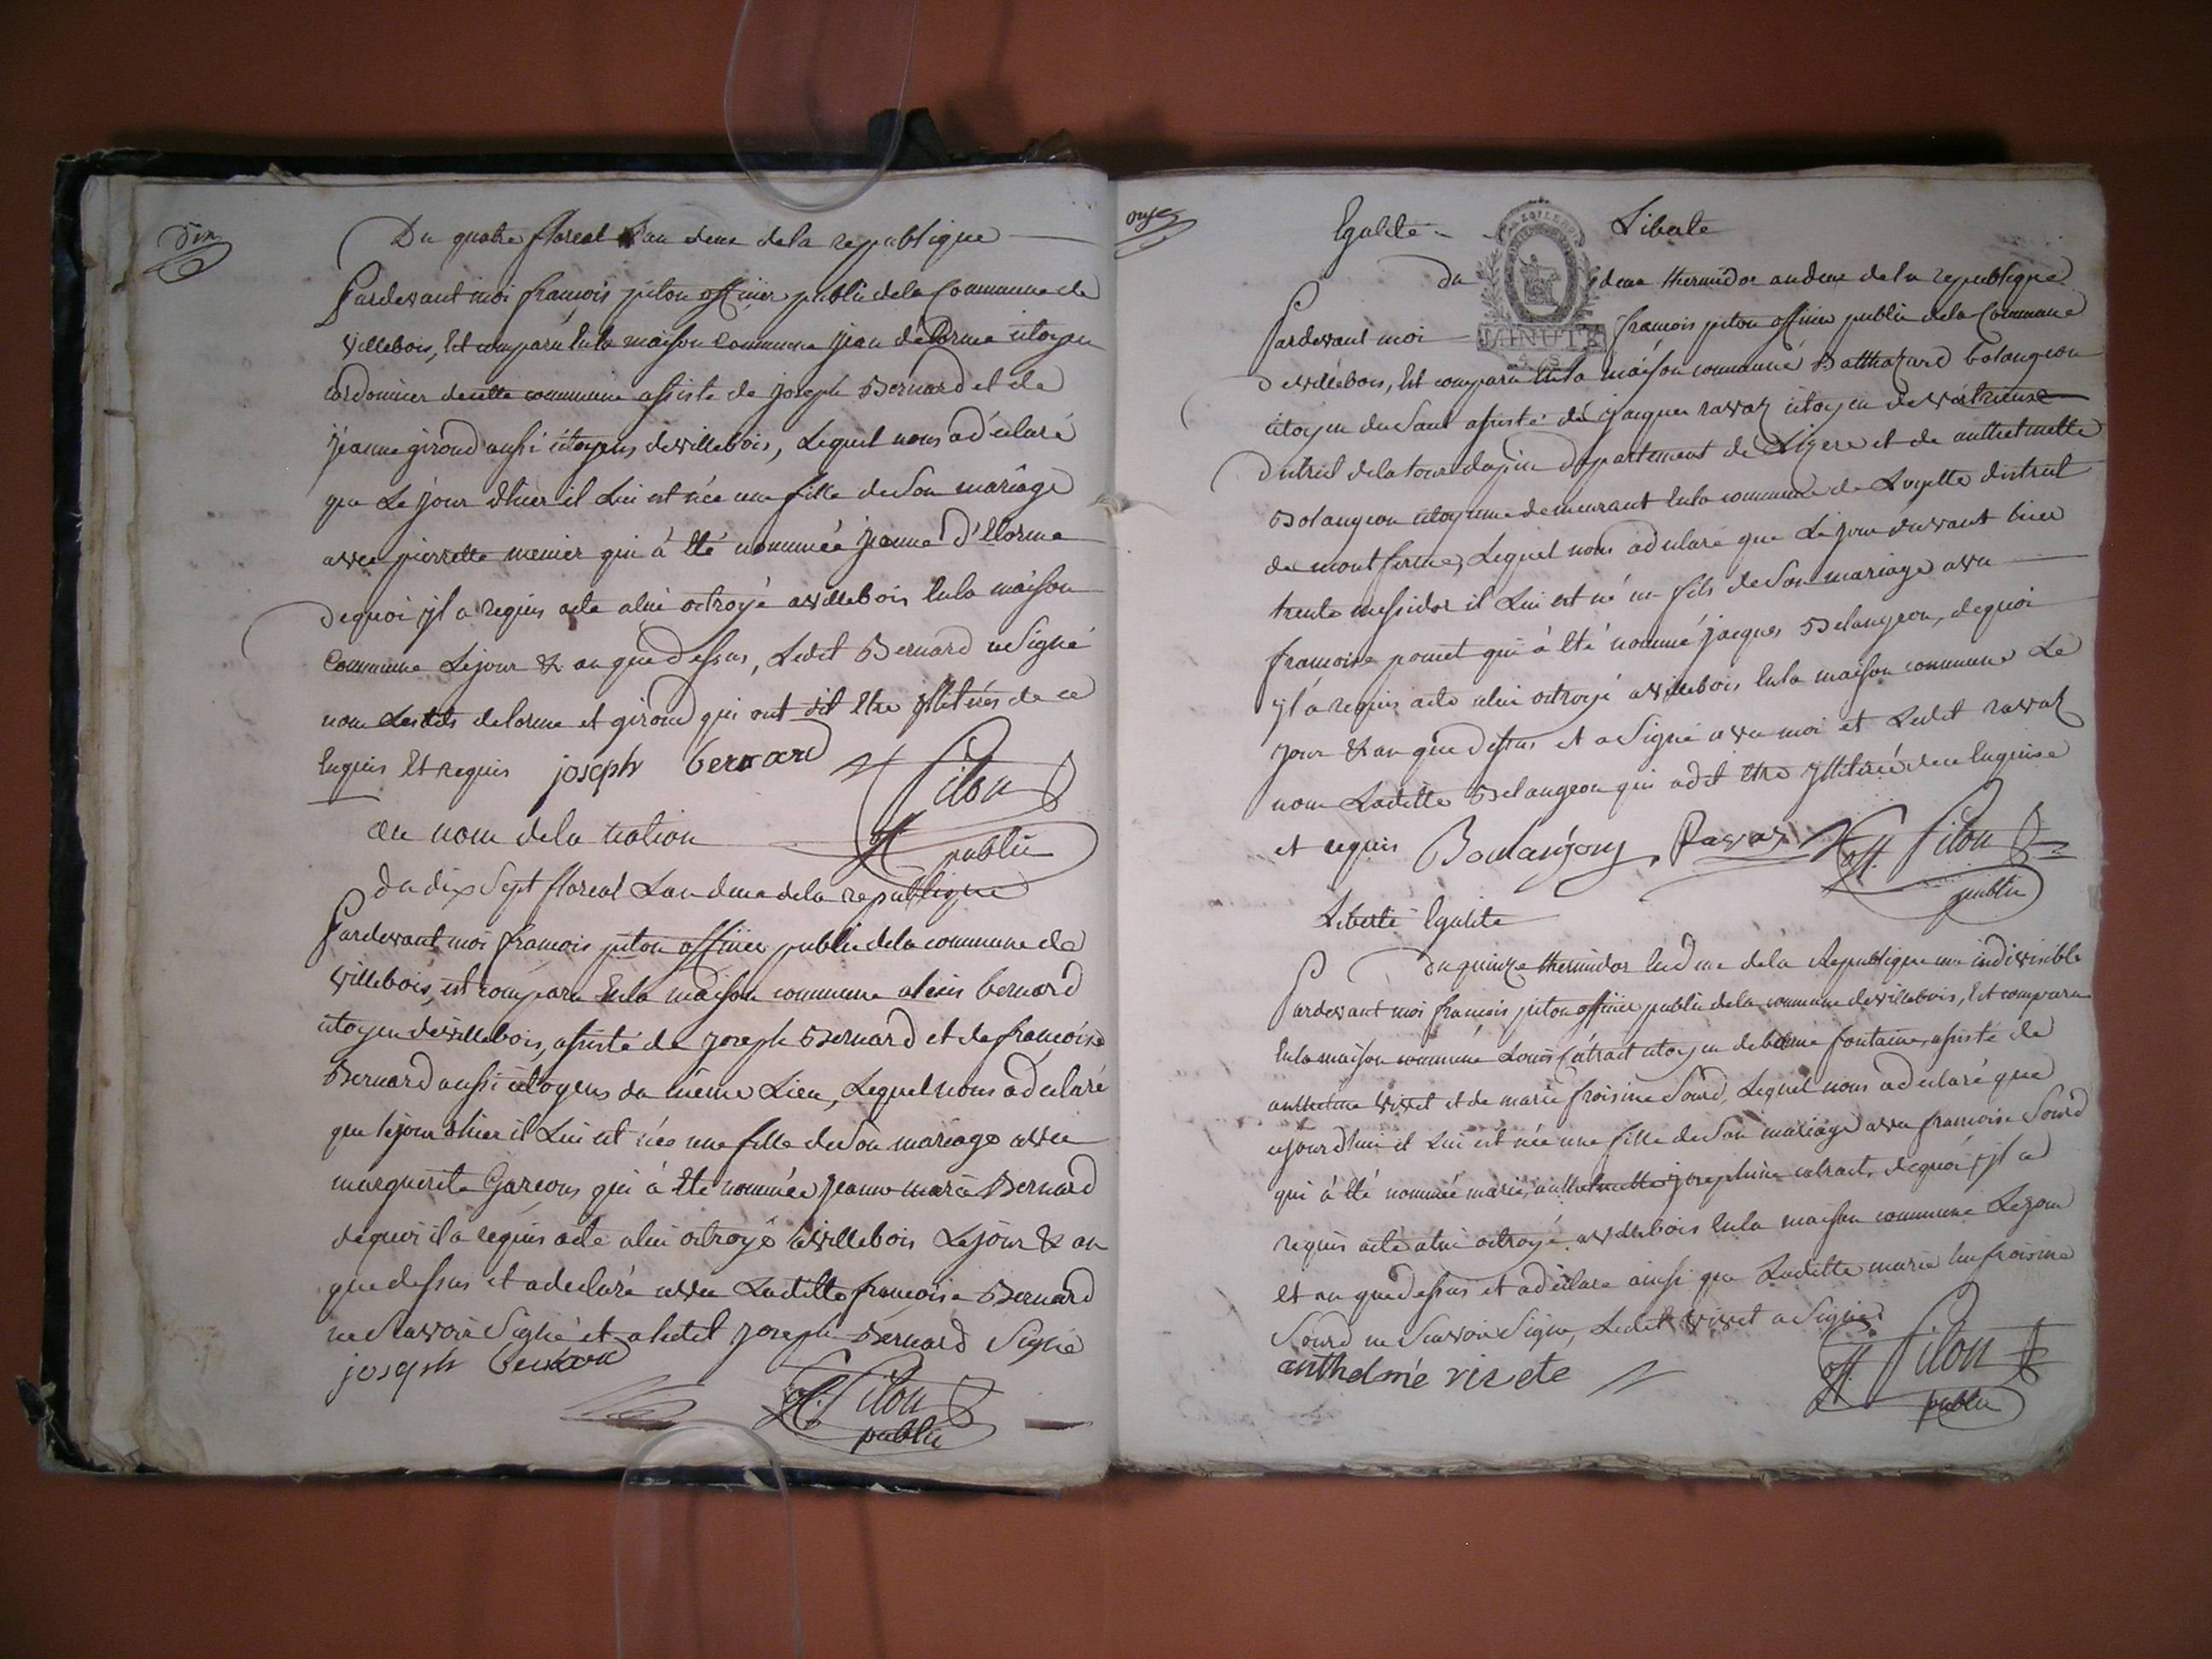 Dix
Du quatre floreal L'an deux de la republique
Pardevant moi françois piton officier public de la Commune de
villebois, Est comparu En la maison Commune jean délorme citoyen
cordonnier de cette commune assisté de joseph Bernard et de
jeanne giroud aussi citoyens de villebois, Lequel nous a déclaré
que Le jour d'hier il Lui est née une fille de son mariage
avec pierrette menier qui à été nommée jeanne d'Elorme
de quoi jl a requis acte a lui octroyé a villebois En la maison
Commune Le jour & an que dessus, Ledit Bernard a Signé
non Lesdits delorme et giroud qui ont dit Etre jllitérés de ce
Enquis Et requis joseph bernard Piton
off
au nom de la nation public
du dix Sept floreal L'an deux de la republique
Pardevant moi françois piton officier public de la commune de
villebois, est comparu En la maison commune alexis bernard
citoyen de villebois, assisté de joseph Bernard et de françoise
Bernard aussi citoyens du même Lieu, Lequel nous a déclaré
que le jour d'hier il Lui est née une fille de Son mariage avec
marguerite Garcons qui à été nommée jeanne marie Bernard
de quoi il a requis acte a lui octroyé a villebois Le jour & an
que dessus et a declaré avec Laditte françoise Bernard
ne Scavoir Signé et a ledit joseph Bernard Signé
joseph bernard
off. Piton
public
onze
Egalité Liberté
MINUTE
du deux thermidor an deux de la republique
Pardevant moi françois piton officier public de la Commune
de villebois, Est comparu En la maison commune Balthazard bolangeon
citoyen du Saut assisté de jacques ravaz citoyen de
district de la tour du pin departement de Lizere et de anthelmette
Bolangeon citoyenne demeurant En la commune de Loyette district
de montferme, Lequel nous a declaré que Le jour d'avant hier
trente messidor il Lui est né un fils de Son mariage avec
françoise pomet qui à été nommé jacques Bolangeon, de quoi
jl a requis acte a lui octroyé a villebois En la maison commune Le
jour & an que dessus et a Signé avec moi et Ledit ravaz
non Laditte Bolangeon qui a dit Etre jllitérée de ce Enquise
et requis Boulangeon Ravaz off. Piton
public
Liberté Egalité
du quinze thermidor L'an deux de la Republique une indivisible
Pardevant moi françois piton officier public de la commune de villebois, Est comparu
En la maison commune Louis Catrait citoyen de bonne fontaine, assisté de
anthelme vivet et de marie froisine Sourd, Lequel nous a declaré que
ajourd'hui il Lui est née une fille de Son mariage avec françoise Sourd
qui à été nommée marie, anthelmette josephine catrait, de quoi jl a
requis acte a lui octroyé a villebois En la maison commune Le jour
et an que dessus et a déclaré ainsi que Laditte marie Eufroisine
Sourd ne Scavoir Signer, Ledit vivet a Signé
anthelme vivete
off. Piton
public